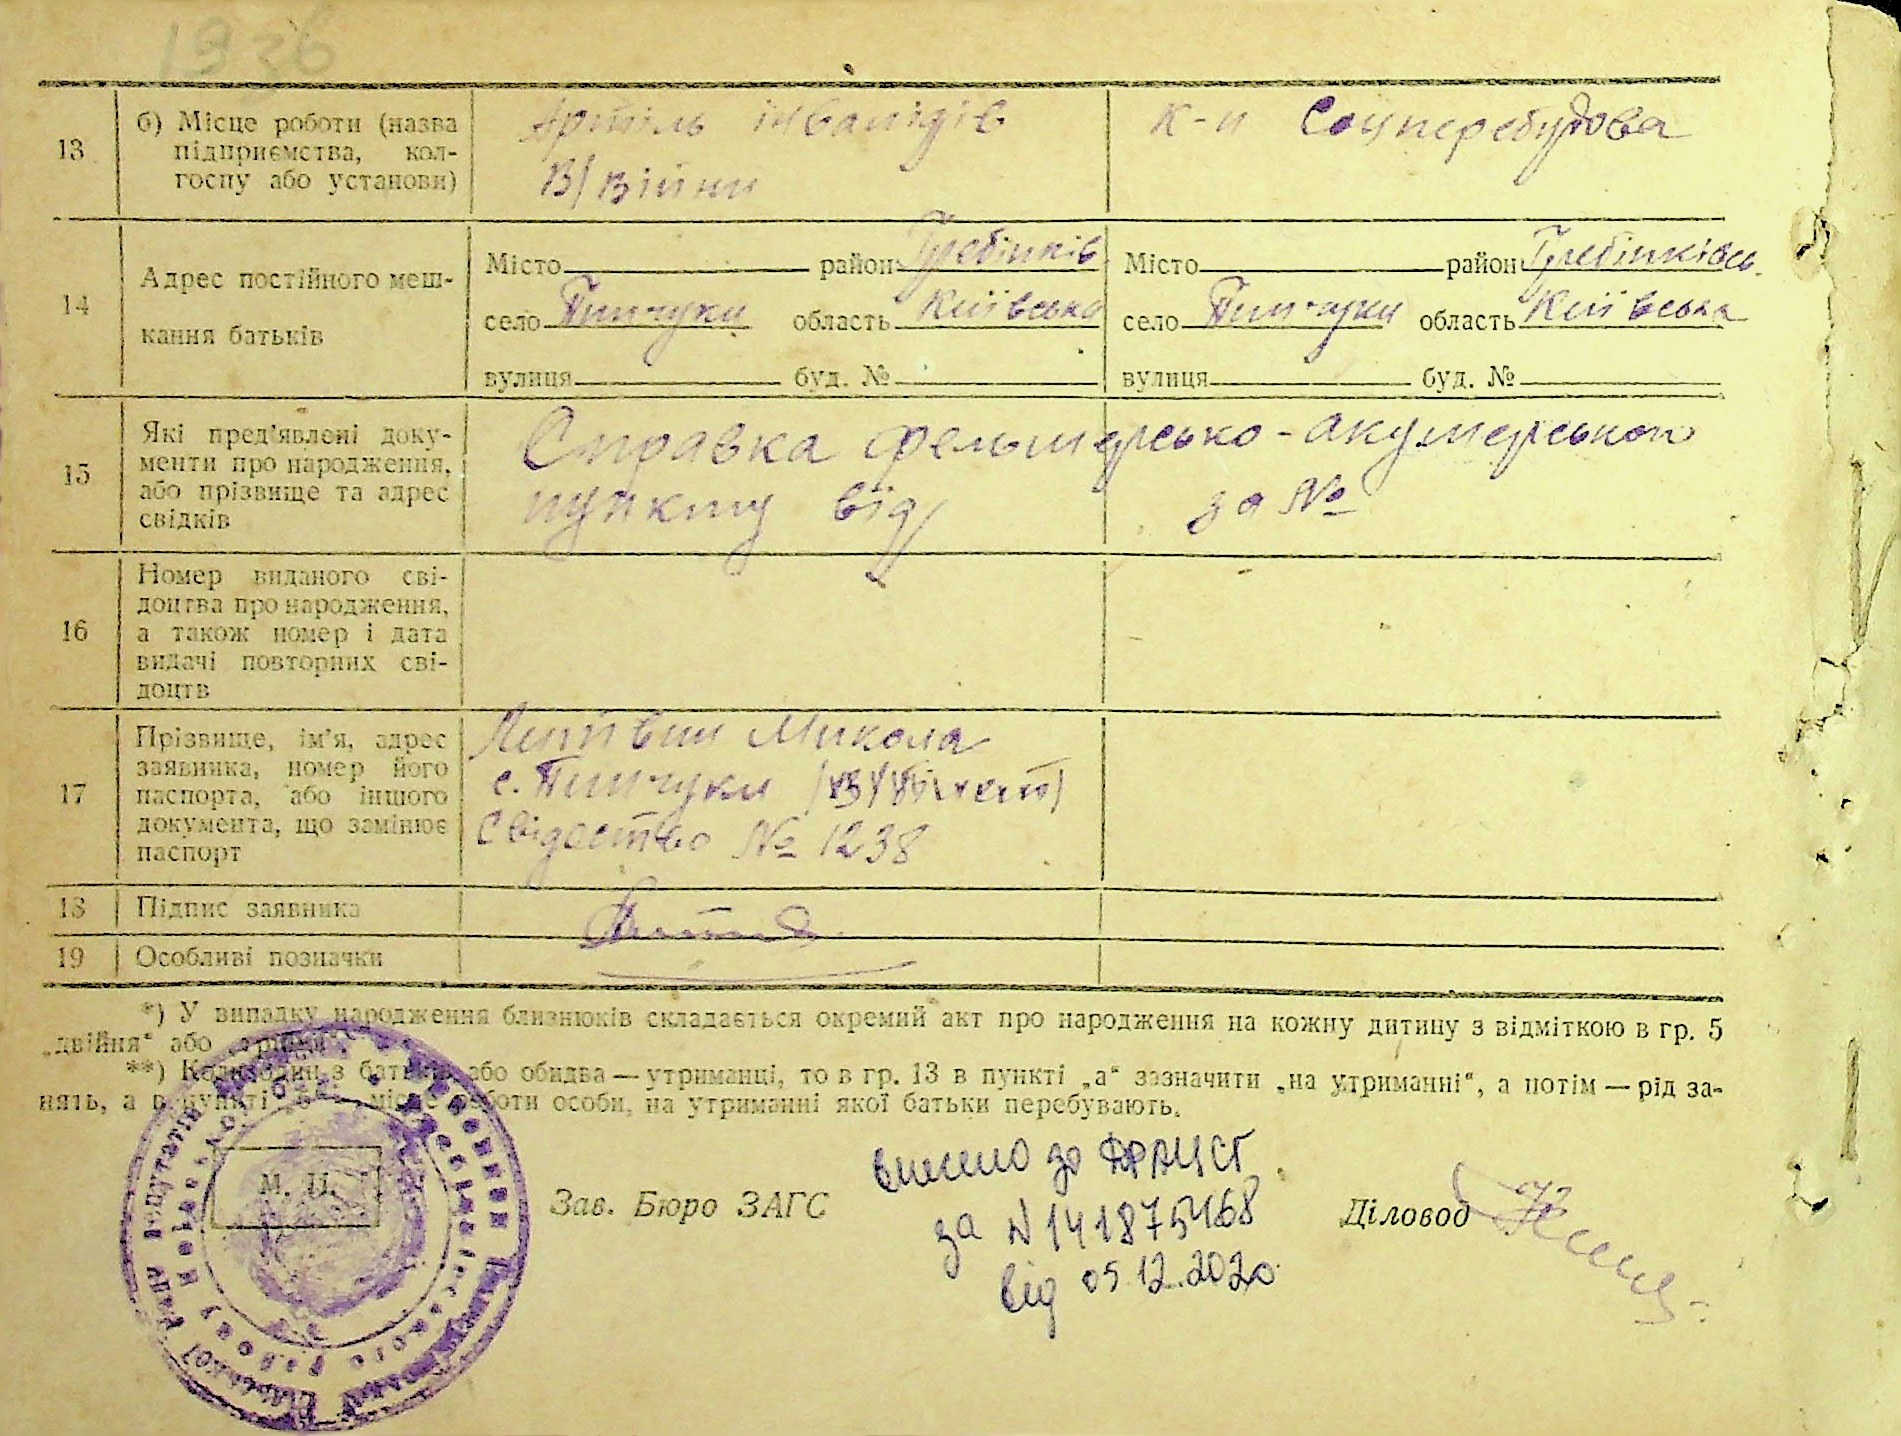 1936
13 б) Місце роботи (назва підприємства, колгоспу або установи)
Артіль інвалідів
В/Війни
к-п Соцперебудова
14 Адрес постійного мешкання батьків
Місто район Гребінків
село Пинчуки область Київська
вулиця буд. №
Місто район Гребінківсь.
село Пинчуки область Київська
вулиця буд. №
15 Які пред'явлені документи про народження, або прізвище та адрес свідків
Справка фельшерсько-акушерського
пункту від за №
16 Номер виданого свідоцтва про народження, а також номер і дата видачі повторних свідоцтв
17 Прізвище, ім'я, адрес заявника, номер його паспорта, або іншого документа, що замінює паспорт
Литвин Микола
с. Пинчуки
Свідоство № 1238
18 Підпис заявника
19 Особливі позначки
*) У випадку народження близнюків складається окремий акт про народження на кожну дитину з відміткою в гр. 5
„двійня“ або
**) Коли один з батьків або обидва — утриманці, то в гр. 13 в пункті „а“ зазначити „на утриманні“, а потім — рід за-
нять, а в пункті „б“ місце роботи особи, на утриманні якої батьки перебувають.
М. П.
Зав. Бюро ЗАГС
внесено до ДРАЦСГ
за N 141875468
від 05.12.2020
Діловод